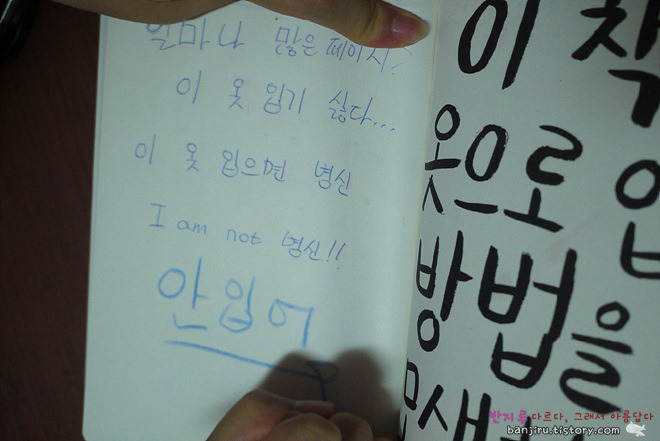 얼마나 많은 페이지?
이 옷 입기 싫다...
이 옷 입으면 병신
I am not 병신!!
안입어
이 책
옷으로 입
방법을
반지루 다르다, 그래서 아름답다
banjiru.tistory.com